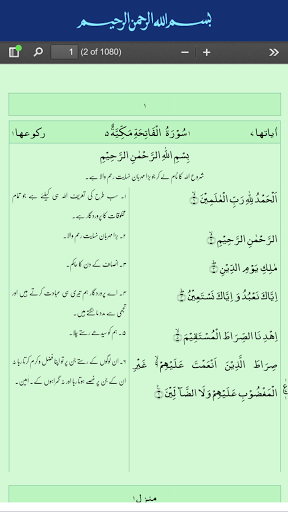 بسم الله الرحمن الرحيم
1 (2 of 1080)
١
اٰیاتها ٧ ١سُوْرَةُ الْفَاتِحَةِ مَكِّيَّةٌ ٥ رکوعها ١
بِسْمِ اللّٰهِ الرَّحْمٰنِ الرَّحِيْمِ
شروع اللہ کا نام لے کر جو بڑا مہربان نہایت رحم والا ہے۔
اَلْحَمْدُ لِلّٰهِ رَبِّ الْعٰلَمِيْنَ ۙ﴿۱﴾
۱۔ سب طرح کی تعریف اللہ ہی کیلئے ہے جو تمام
مخلوقات کا پروردگار ہے۔
الرَّحْمٰنِ الرَّحِيْمِ ۙ﴿۲﴾
۲۔ بڑا مہربان نہایت رحم والا۔
مٰلِكِ يَوْمِ الدِّيْنِ ؕ﴿۳﴾
۳۔ انصاف کے دن کا حاکم۔
اِيَّاكَ نَعْبُدُ وَ اِيَّاكَ نَسْتَعِيْنُ ؕ﴿۴﴾
۴۔ اے پروردگار ہم تیری ہی عبادت کرتے ہیں اور
تجھی سے مدد مانگتے ہیں۔
اِهْدِنَا الصِّرَاطَ الْمُسْتَقِيْمَ ۙ﴿۵﴾
۵۔ ہم کو سیدھے رستے چلا۔
صِرَاطَ الَّذِيْنَ اَنْعَمْتَ عَلَيْهِمْ ۙ۬ غَيْرِ
الْمَغْضُوْبِ عَلَيْهِمْ وَ لَا الضَّآلِّيْنَ ﴿۶﴾
۶۔ ان لوگوں کے رستے جن پر تو اپنا فضل و کرم کرتا رہا نہ
ان کے جن پر غصے ہوتا رہا اور نہ گمراہوں کے۔ آمین۔
منزل ١